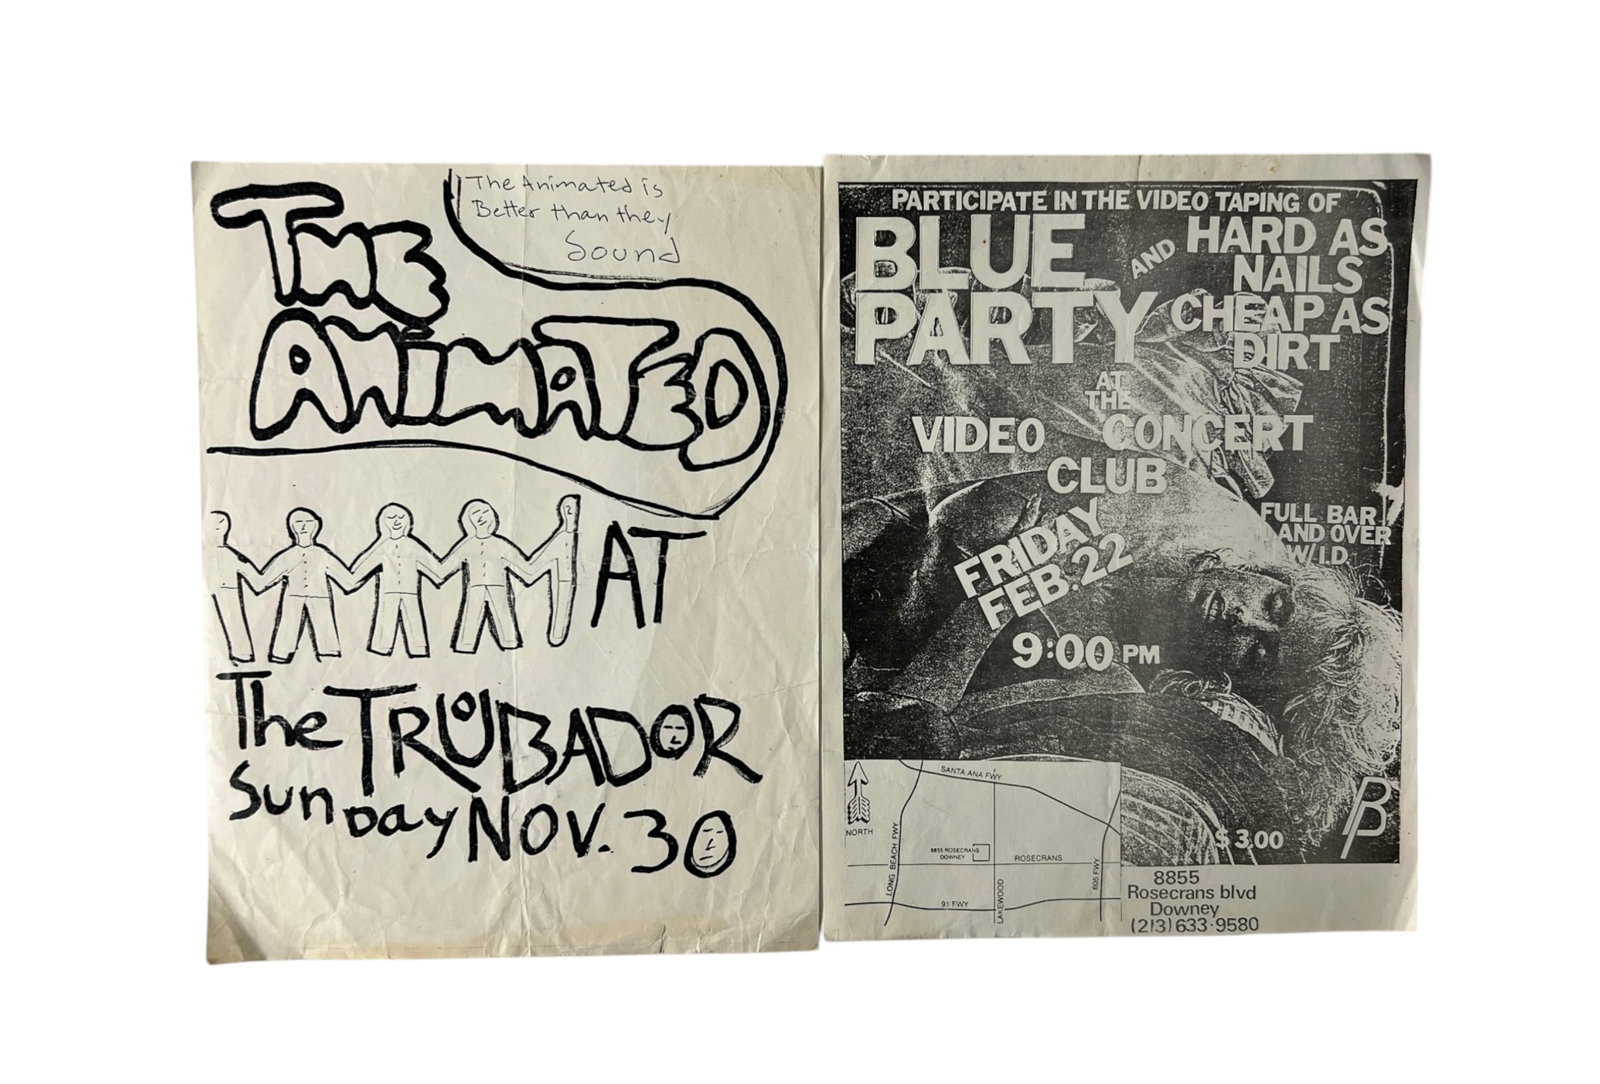 The Animated is
Better than they
Sound
THE
ANIMATED
AT
The TRUBADOR
Sunday NOV. 30
PARTICIPATE IN THE VIDEO TAPING OF
BLUE
PARTY
AND
HARD AS
NAILS
CHEAP AS
DIRT
AT
THE
VIDEO CONCERT
CLUB
FRIDAY
FEB. 22
9:00 PM
FULL BAR
AND OVER
W/I.D.
$3.00
SANTA ANA FWY
NORTH
LONG BEACH FWY
8855 ROSECRANS
DOWNEY
ROSECRANS
LAKEWOOD
605 FWY
91 FWY
8855
Rosecrans blvd
Downey
(213) 633-9580